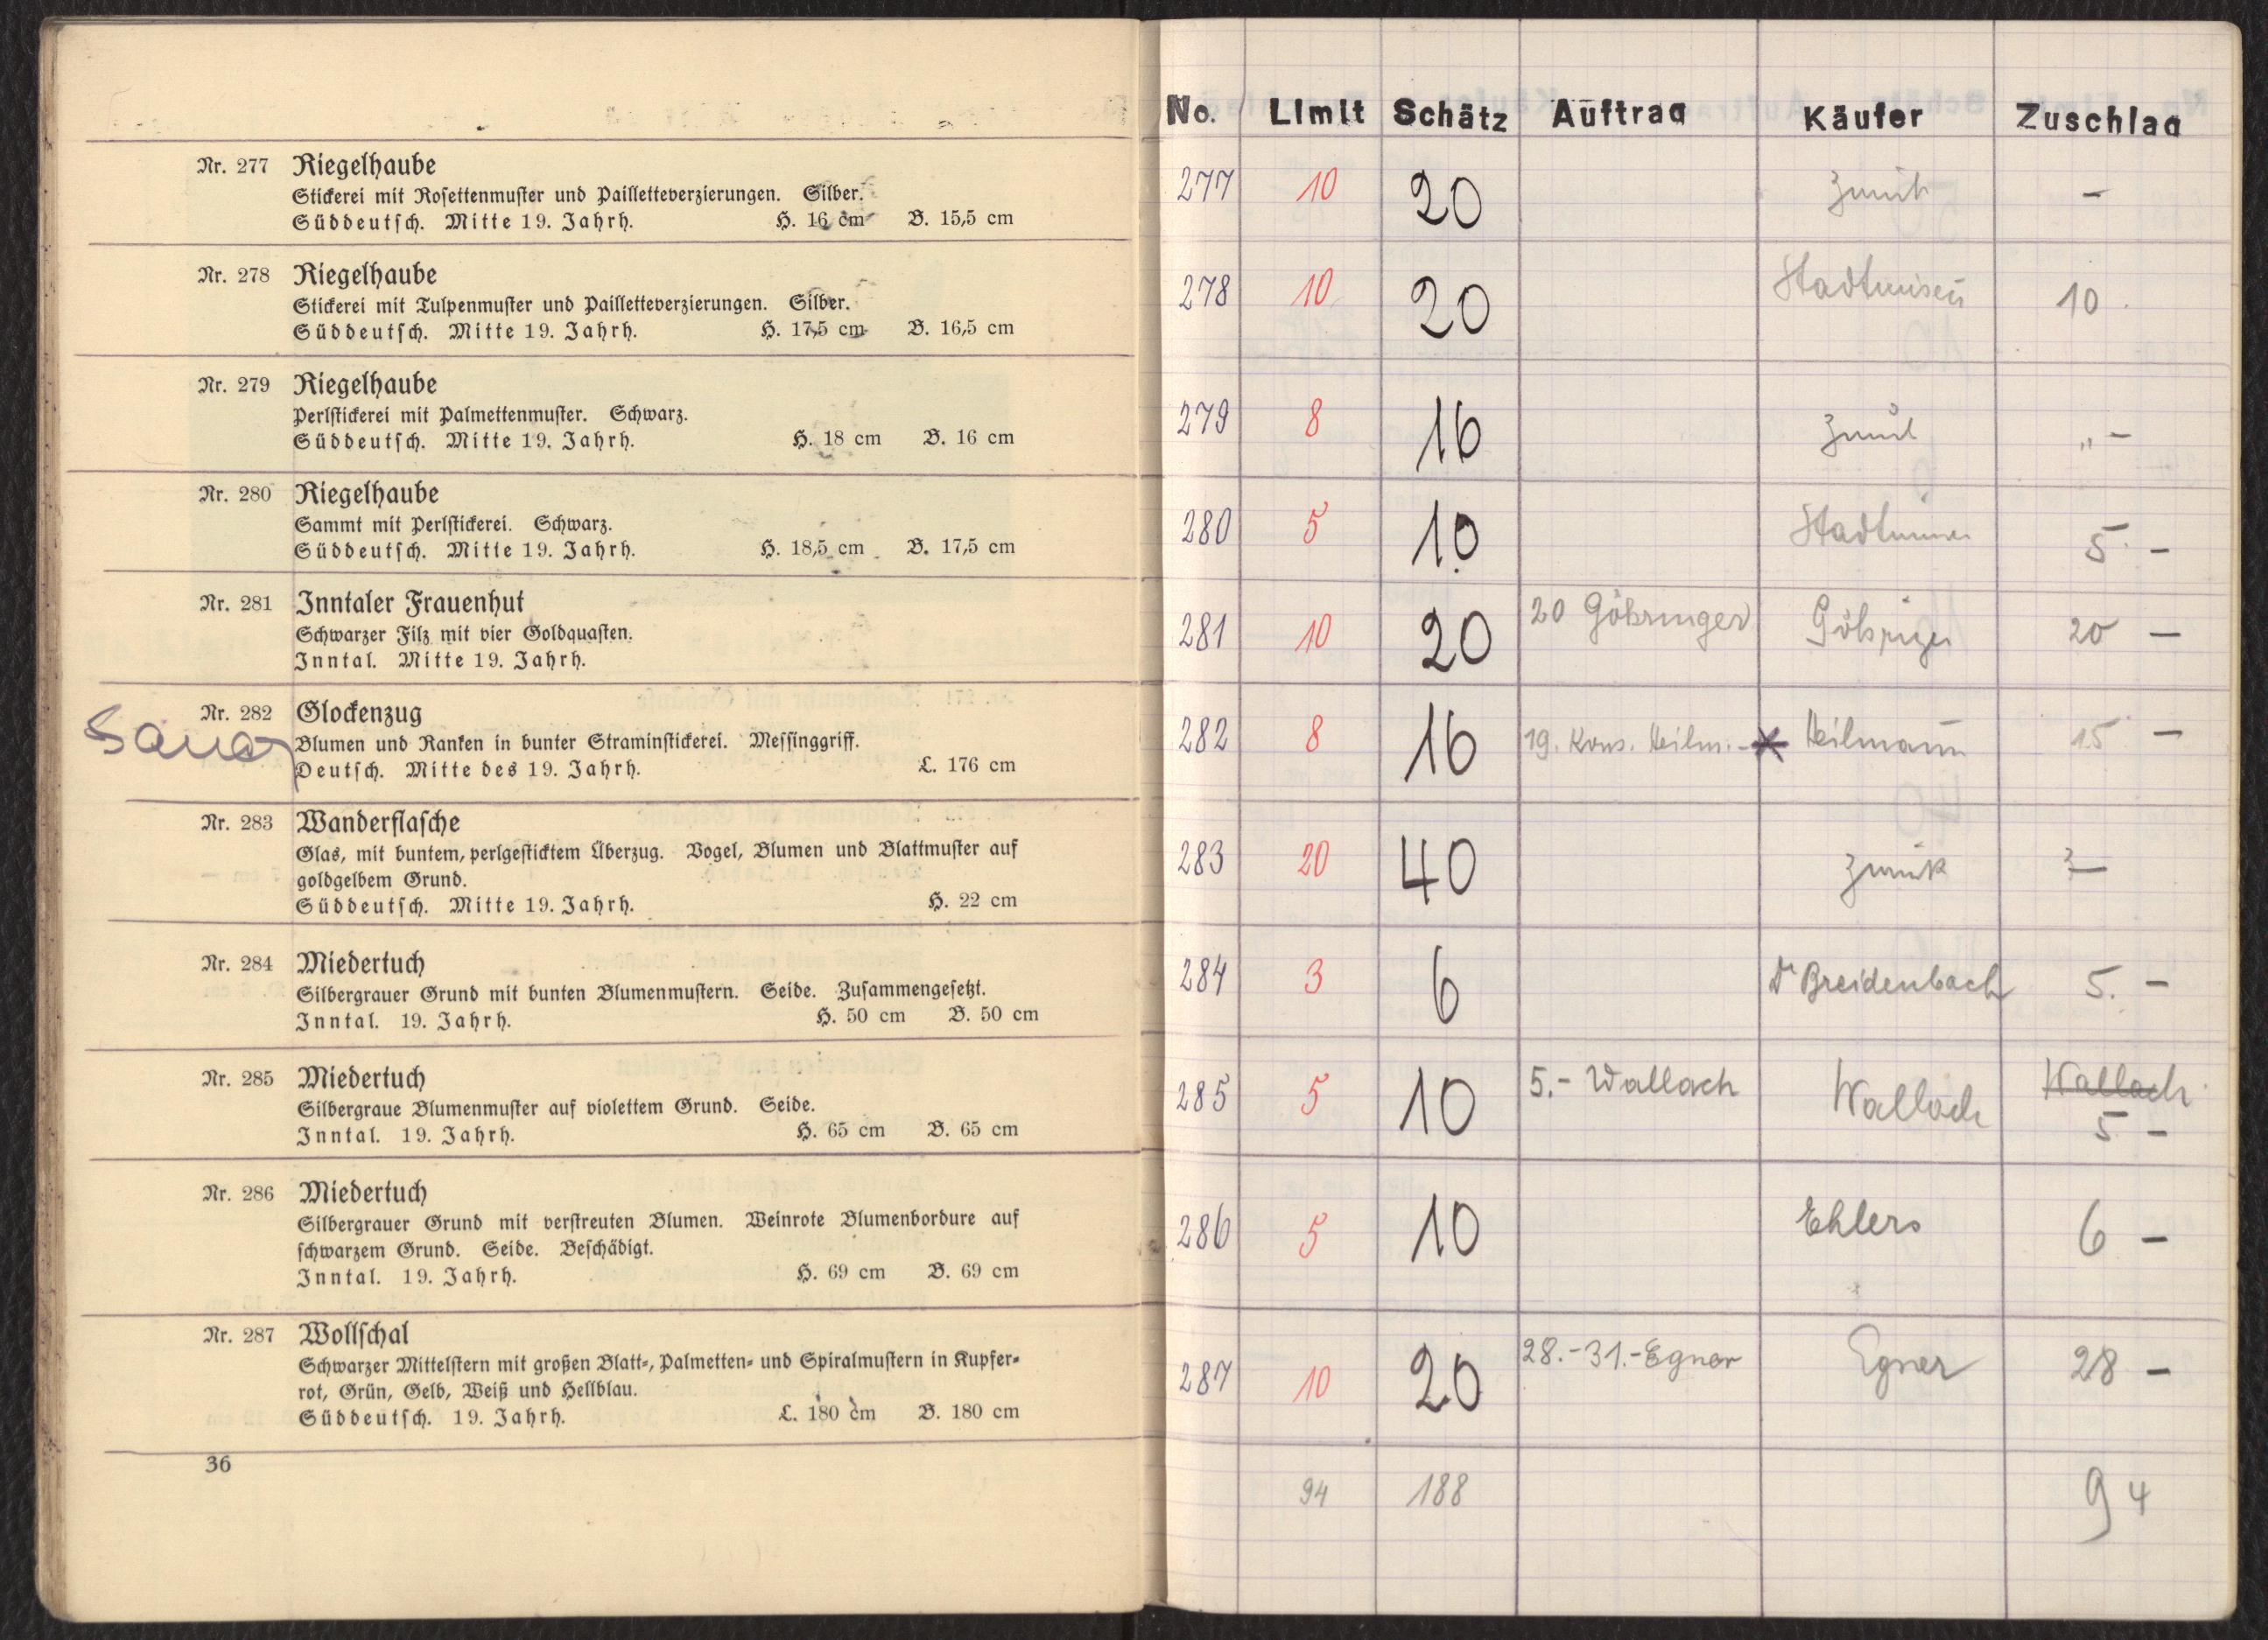 Nr. 277 Riegelhaube
Stickerei mit Rosettenmuster und Pailletteverzierungen. Silber.
Süddeutsch. Mitte 19. Jahrh. H. 16 cm B. 15,5 cm
Nr. 278 Riegelhaube
Stickerei mit Tulpenmuster und Pailletteverzierungen. Silber.
Süddeutsch. Mitte 19. Jahrh. H. 17,5 cm B. 16,5 cm
Nr. 279 Riegelhaube
Perlstickerei mit Palmettenmuster. Schwarz.
Süddeutsch. Mitte 19. Jahrh. H. 18 cm B. 16 cm
Nr. 280 Riegelhaube
Sammt mit Perlstickerei. Schwarz.
Süddeutsch. Mitte 19. Jahrh. H. 18,5 cm B. 17,5 cm
Nr. 281 Inntaler Frauenhut
Schwarzer Filz mit vier Goldquasten.
Inntal. Mitte 19. Jahrh.
Nr. 282 Glockenzug
Blumen und Ranken in bunter Straminstickerei. Messinggriff.
Deutsch. Mitte des 19. Jahrh. L. 176 cm
Nr. 283 Wanderflasche
Glas, mit buntem, perlgesticktem Überzug. Vogel, Blumen und Blattmuster auf
goldgelbem Grund.
Süddeutsch. Mitte 19. Jahrh. H. 22 cm
Nr. 284 Miedertuch
Silbergrauer Grund mit bunten Blumenmustern. Seide. Zusammengesetzt.
Inntal. 19. Jahrh. H. 50 cm B. 50 cm
Nr. 285 Miedertuch
Silbergraue Blumenmuster auf violettem Grund. Seide.
Inntal. 19. Jahrh. H. 65 cm B. 65 cm
Nr. 286 Miedertuch
Silbergrauer Grund mit verstreuten Blumen. Weinrote Blumenbordure auf
schwarzem Grund. Seide. Beschädigt.
Inntal. 19. Jahrh. H. 69 cm B. 69 cm
Nr. 287 Wollschal
Schwarzer Mittelstern mit großen Blatt-, Palmetten- und Spiralmustern in Kupfer-
rot, Grün, Gelb, Weiß und Hellblau.
Süddeutsch. 19. Jahrh. L. 180 cm B. 180 cm
36
No. Limit Schätz Auftrag Käufer Zuschlag
277 10 20 –
278 10 20 10
279 8 16 „ –
280 5 10 5 –
281 10 20 20 Göhringer Göhringer 20 –
282 8 16 19. Kons. Heilm. – Heilmann 15 –
283 20 40 zurück
284 3 6 Dr Breidenbach 5. –
285 5 10 5.– Wallach Wallach Wallach
5 –
286 5 10 Ehlers 6 –
287 10 20 28.–31.– Egner Egner 28 –
94 188 94